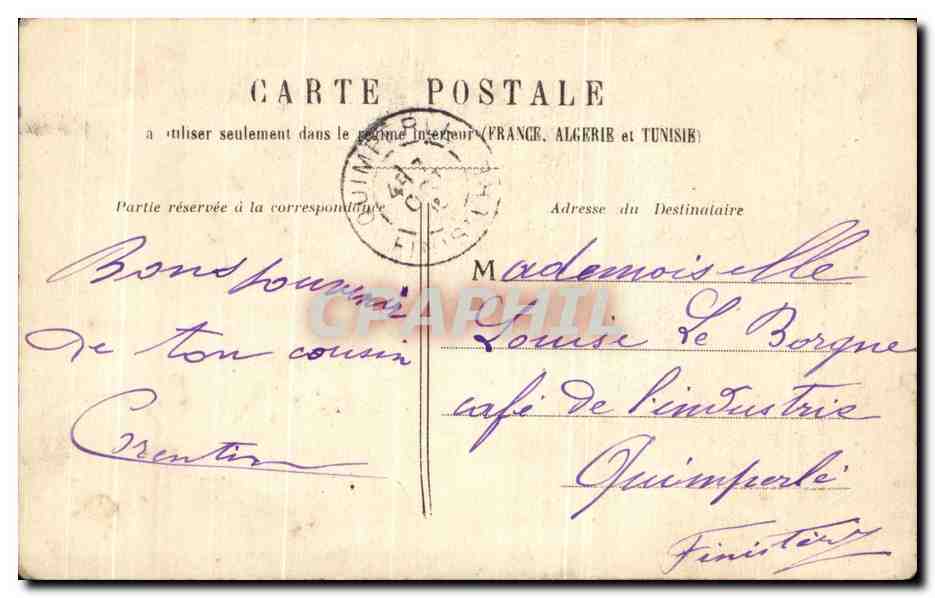 CARTE POSTALE
a utiliser seulement dans le régime intérieur (FRANCE, ALGERIE et TUNISIE)
QUIMPERLE
FINISTERE
Partie réservée à la correspondance
Adresse du Destinataire
Bons souvenir
de ton cousin
Corentin
Mademoiselle
Louise Le Borgne
café de l'industrie
Quimperlé
Finistère
CPAPHIL